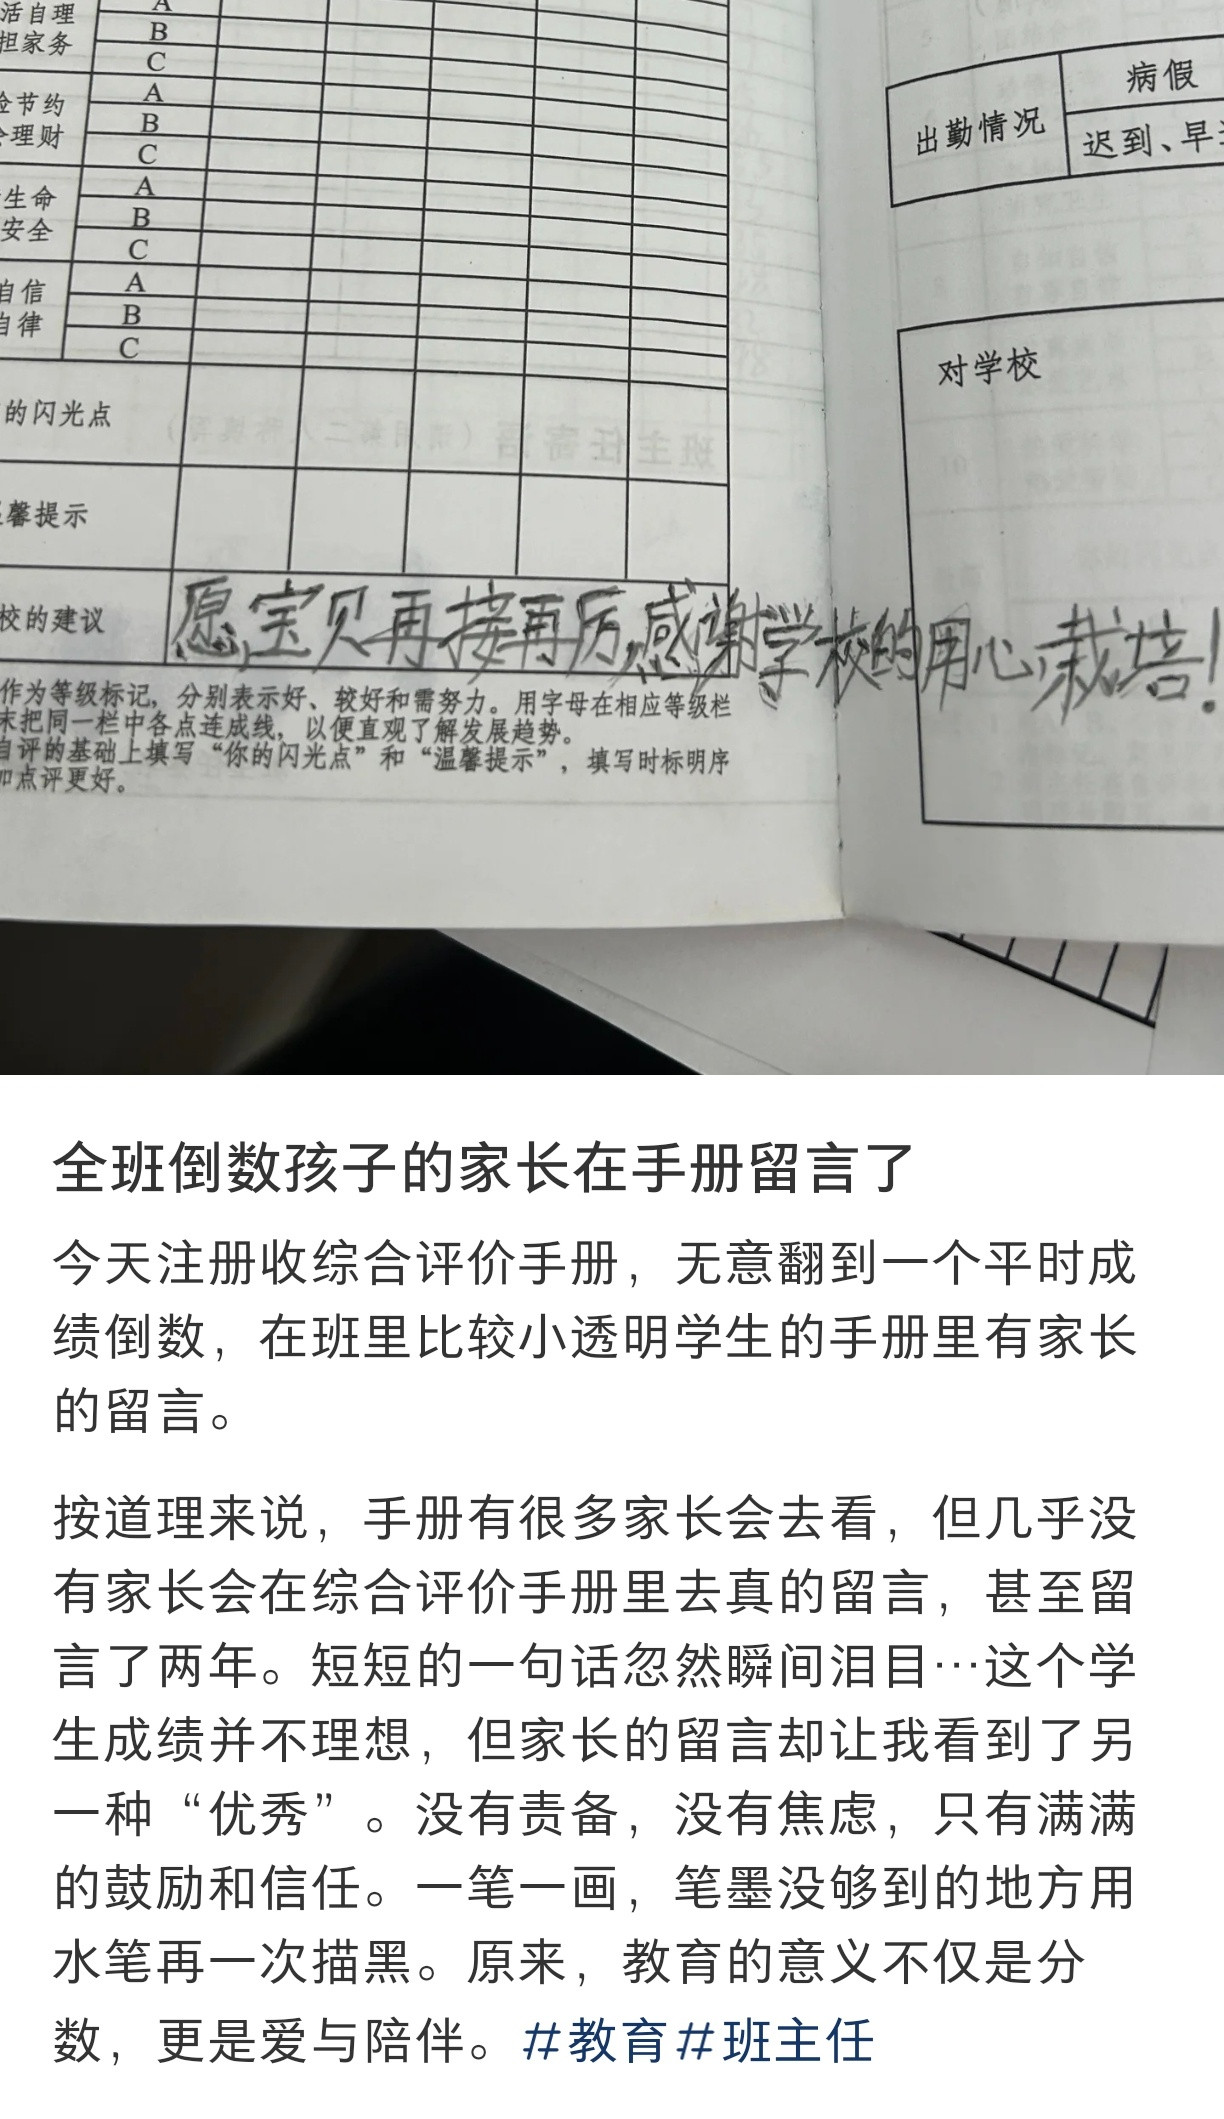 活自理
担家务
A
B
C
节约
理财
A
B
C
生命
安全
A
B
C
自信
自律
A
B
C
的闪光点
馨提示
校的建议
愿宝贝再接再厉,感谢学校的用心栽培!
作为等级标记，分别表示好、较好和需努力。用字母在相应等级栏
末把同一栏中各点连成线，以便直观了解发展趋势。
自评的基础上填写“你的闪光点”和“温馨提示”，填写时标明序
加点评更好。
出勤情况
病假
迟到、早
对学校
班主任寄语
全班倒数孩子的家长在手册留言了
今天注册收综合评价手册，无意翻到一个平时成
绩倒数，在班里比较小透明学生的手册里有家长
的留言。
按道理来说，手册有很多家长会去看，但几乎没
有家长会在综合评价手册里去真的留言，甚至留
言了两年。短短的一句话忽然瞬间泪目…这个学
生成绩并不理想，但家长的留言却让我看到了另
一种“优秀”。没有责备，没有焦虑，只有满满
的鼓励和信任。一笔一画，笔墨没够到的地方用
水笔再一次描黑。原来，教育的意义不仅是分
数，更是爱与陪伴。#教育#班主任